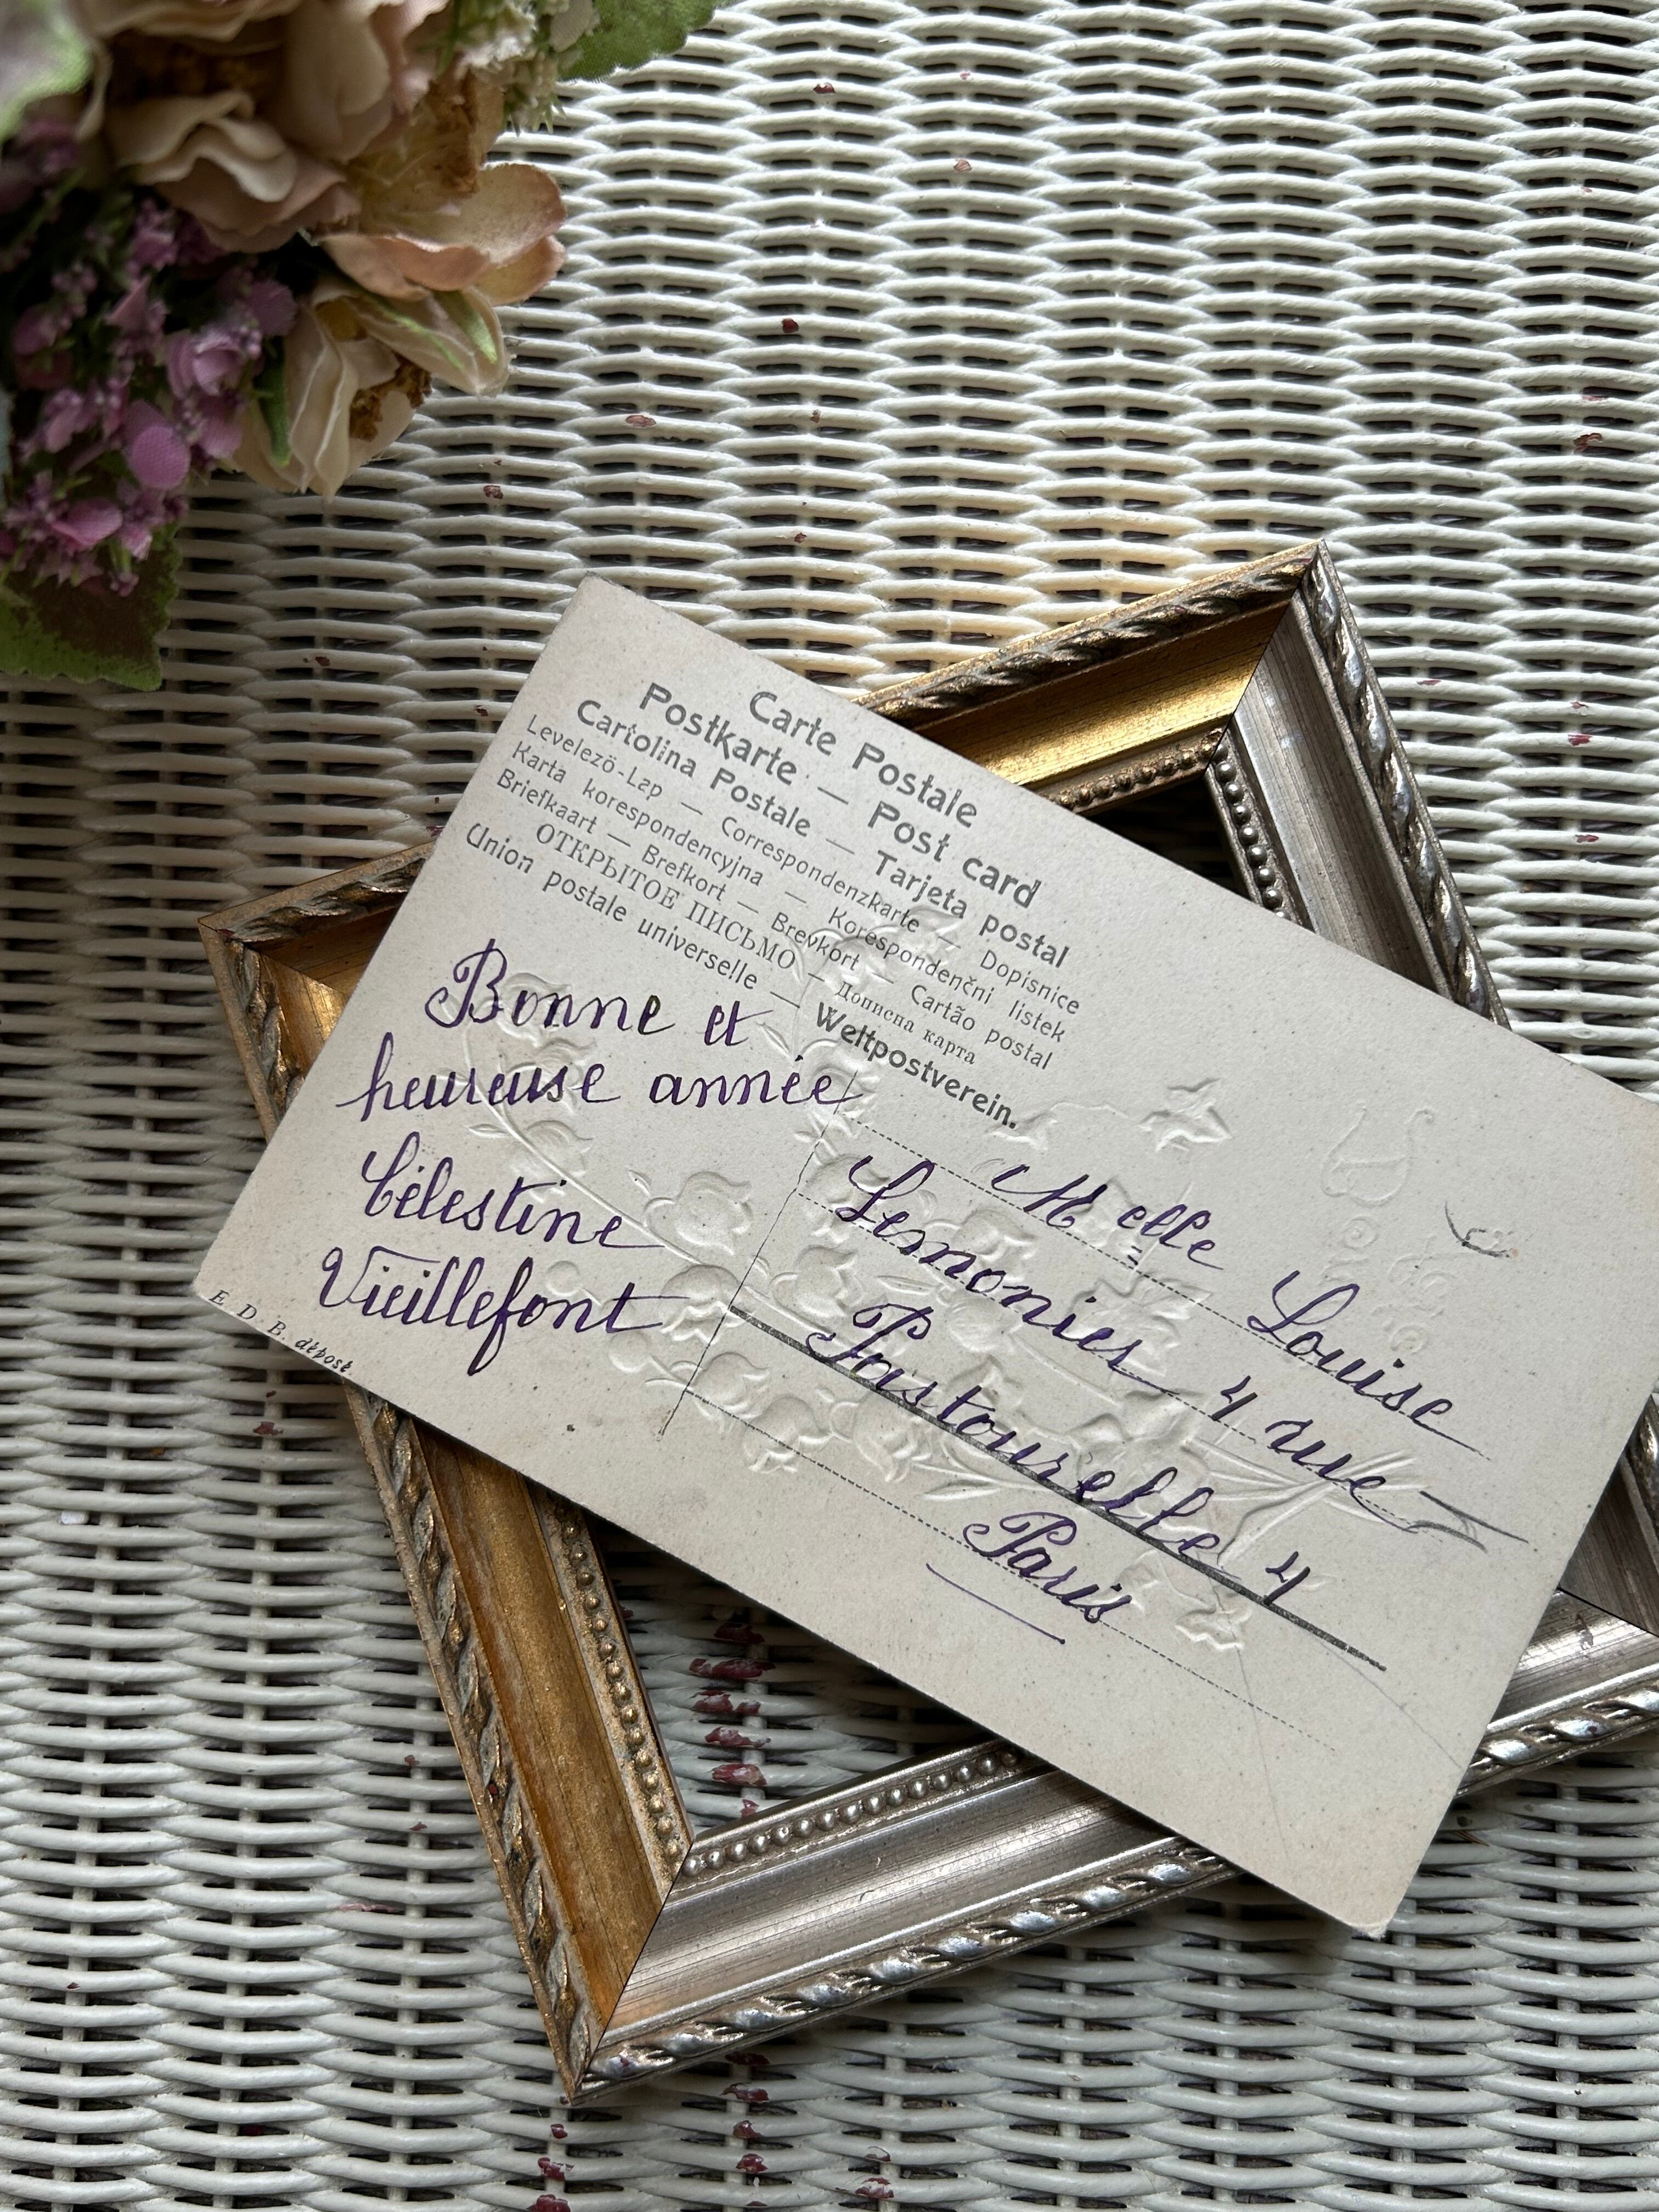 Carte Postale
Postkarte — Post card
Cartolina Postale — Tarjeta postal
Levelezö-Lap — Correspondenzkarte — Dopisnice
Karta korespondencyjna — Korespondenční listek
Briefkaart — Brefkort — Brevkort — Cartão postal
ОТКРЫТОЕ ПИСЬМО — Дописна карта
Union postale universelle — Weltpostverein.
Bonne et
heureuse année
Célestine
Vieillefont
E. D. B. déposé
Melle Louise
Lemonier 4 rue
Pastourelle 4
Paris